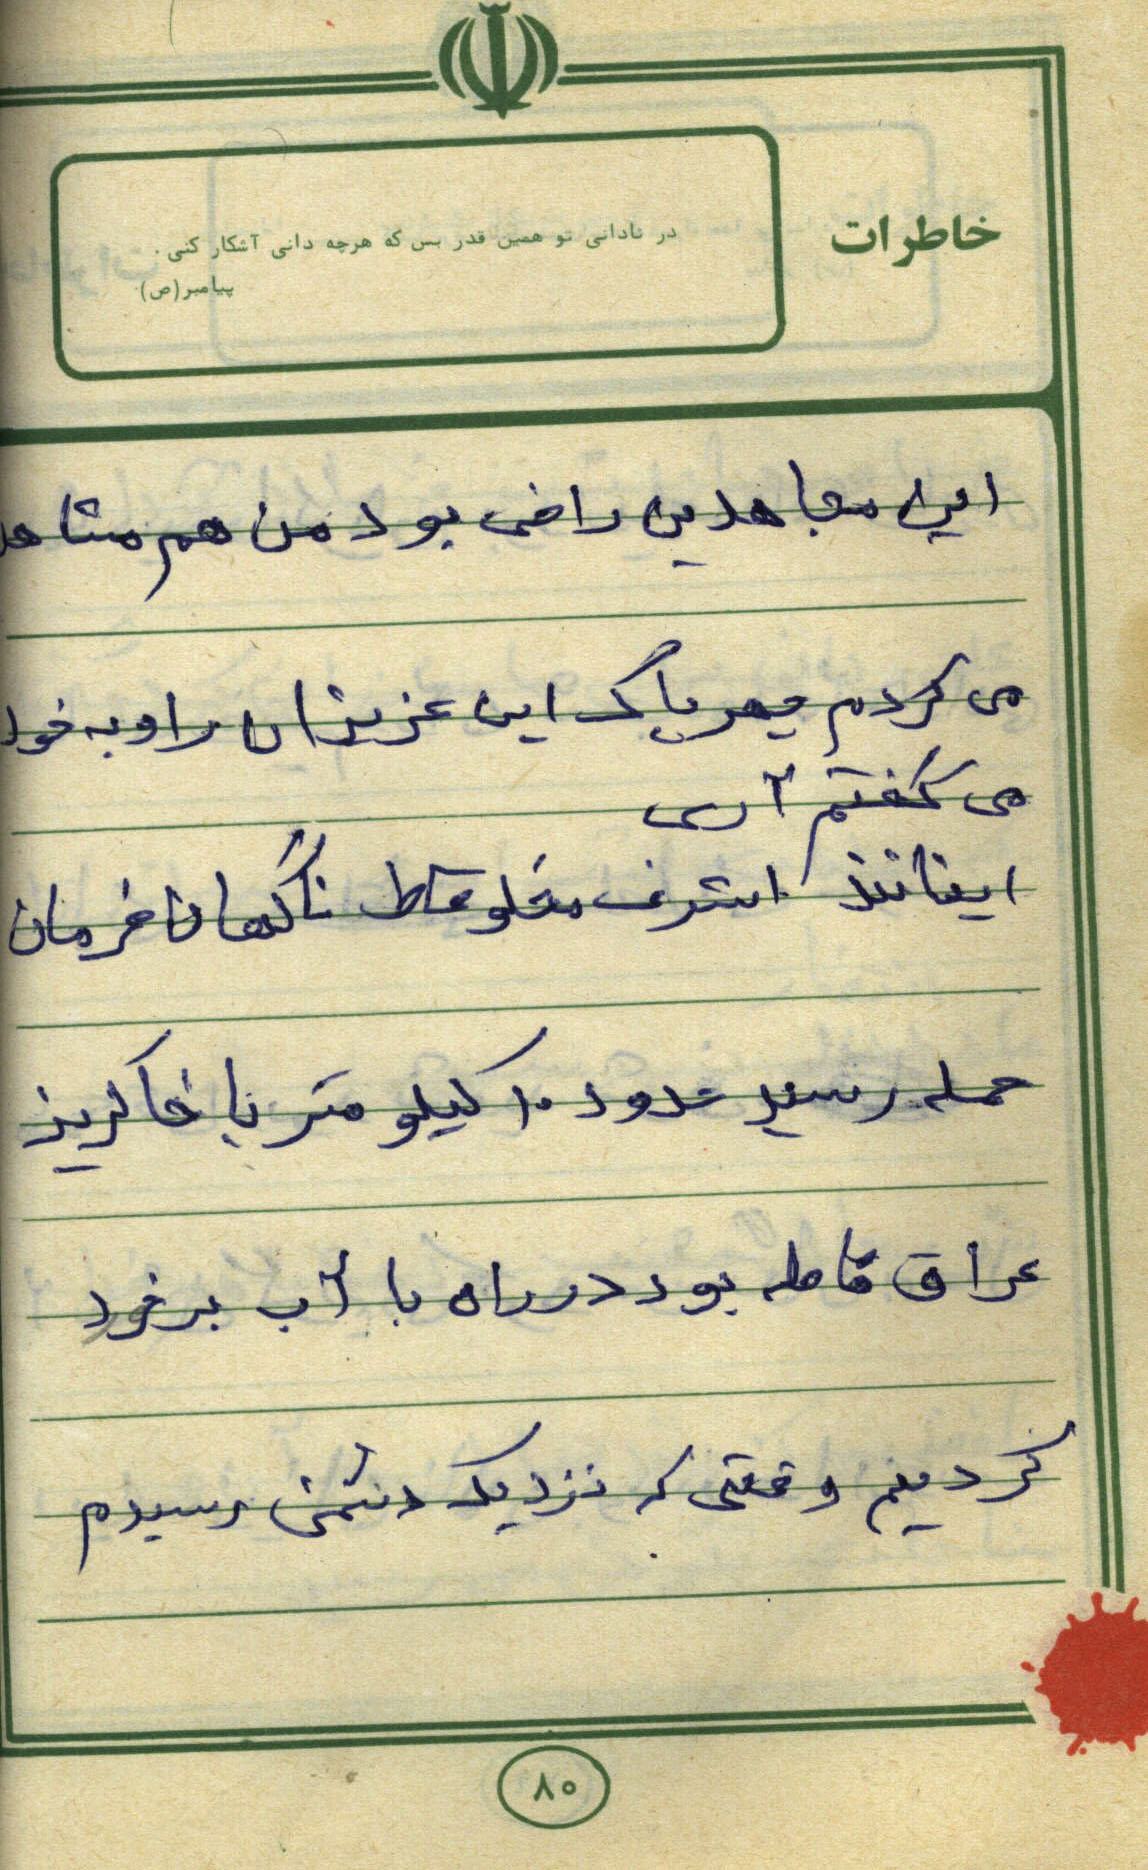 خاطرات
در نادانی تو همین قدر بس که هرچه دانی آشکار کنی .
پیامبر(ص)
این مجاهدین راضی بود من هم مشاهد
می کردم چهر پاک این عزیزان را و به خود
می گفتم آری
اینانند اشرف مخلوقات ناگهان فرمان
حمله رسید حدود ۱۰ کیلو متر با خاکریز
عراق فاصله بود در راه با آب برخورد
کردیم وقتی که نزدیک دشمن رسیدم
۸۰